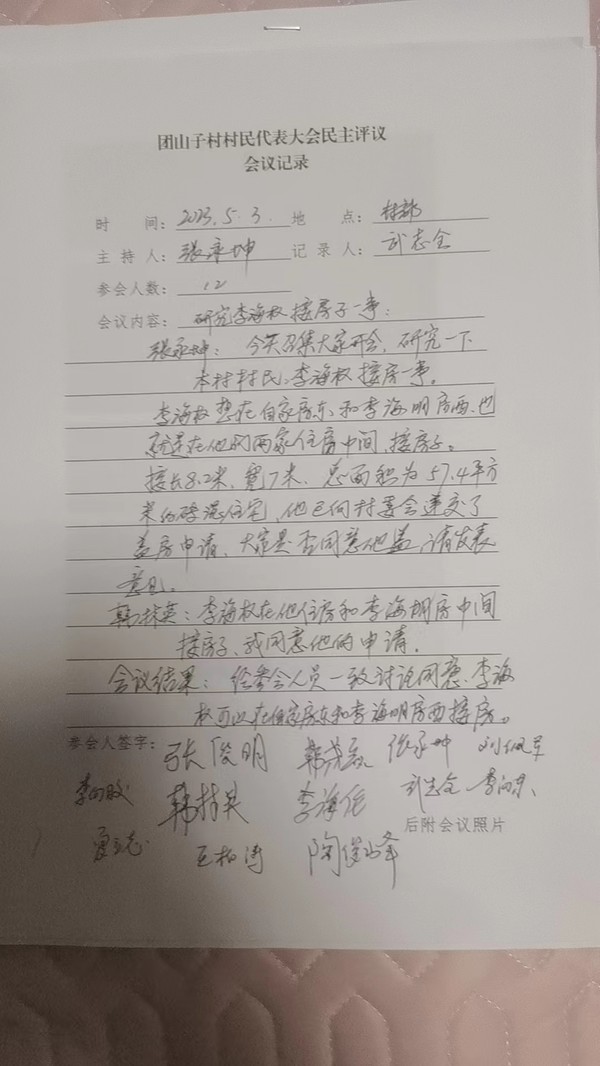 团山子村村民代表大会民主评议
会议记录
时 间: 2023.5.3. 地 点: 村部
主持人: 张承坤 记录人: 武志全
参会人数: 12
会议内容: 研究李海权接房子一事:
张承坤: 今天召集大家开会, 研究一下
本村村民, 李海权接房一事。
李海权想在自家房东和李海明房西, 也
就是在他们两家住房中间, 接房子。
接长8.2米, 宽7米, 总面积为57.4平方
米的砖混住宅, 他已向村委会递交了
盖房申请, 大家是否同意他盖, 请发表
意见。
韩树英: 李海权在他住房和李海明房中间
接房子, 我同意他的申请.
会议结果: 经参会人员一致讨论同意, 李海
权可以在自家房东和李海明房西接房。
参会人签字: 张俊明 张承坤
韩树英 武志全
后附会议照片
陶俊峰